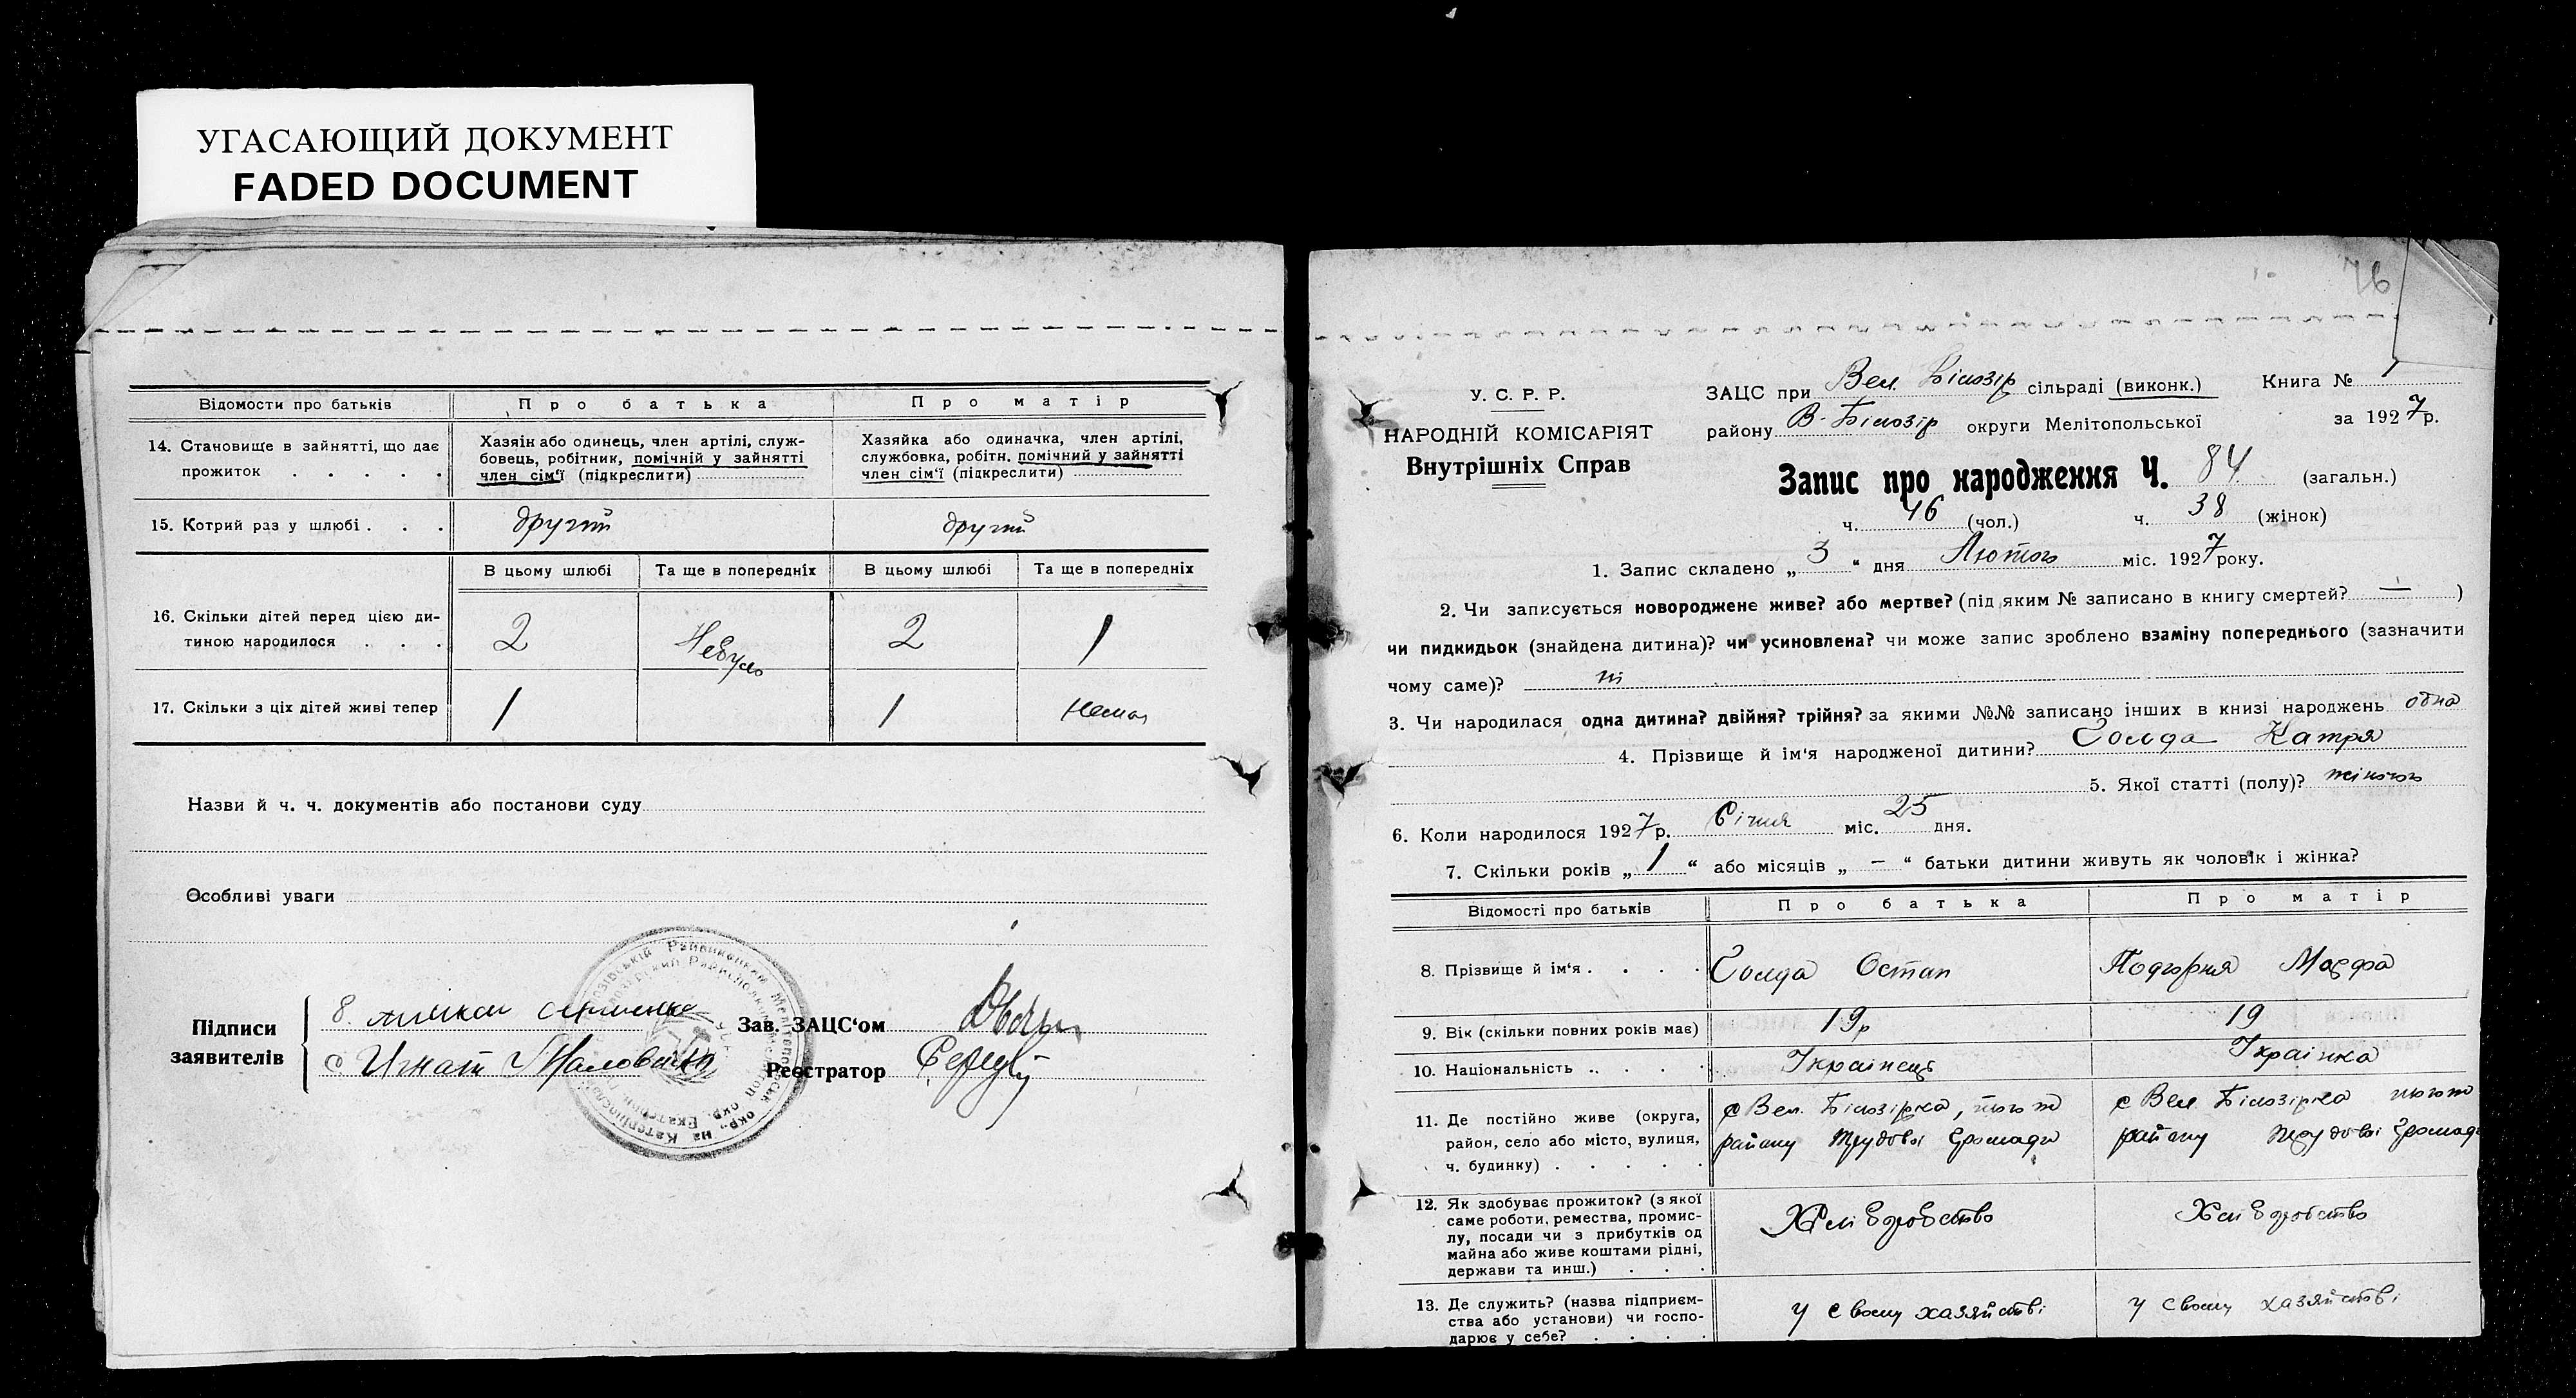 УГАСАЮЩИЙ ДОКУМЕНТ
FADED DOCUMENT
Відомости про батьків
Про батька
Про матір
14. Становище в зайнятті, що дає прожиток . . . . .
Хазяін або одинець, член артілі, служ-
бовець, робітник, помічній у зайнятті
член сім'ї (підкреслити)
Хазяйка або одиначка, член артілі,
службовка, робітн. помічний у зайнятті
член сім'ї (підкреслити)
15. Котрий раз у шлюбі . . .
другий
другий
В цьому шлюбі
Та ще в попередніх
В цьому шлюбі
Та ще в попередніх
16. Скільки дітей перед цією ди-
тиною народилося . . .
2
Небуло
2
1
17. Скільки з ціх дітей живі тепер
1
1
Немає
Назви й ч. ч. документів або постанови суду
Особливі уваги
Підписи
заявителів
Игнат Маловичко
Зав. ЗАЦС'ом
Реєстратор
76
У. С. Р. Р.
НАРОДНІЙ КОМІСАРІЯТ
Внутрішніх Справ
ЗАЦС при Вел. Білозір сільраді (виконк.)
Книга № 1
району В-Білозір округи Мелітопольської
за 1927 р.
Запис про народження Ч. 84 (загальн.)
ч. 46 (чол.) ч. 38 (жінок)
1. Запис складено „ 3 “ дня Лютого міс. 1927 року.
2. Чи записується новороджене живе? або мертве? (під яким № записано в книгу смертей? — )
чи пидкидьок (знайдена дитина)? чи усиновлена? чи може запис зроблено взаміну попереднього (зазначити
чому саме)? ні
3. Чи народилася одна дитина? двійня? трійня? за якими №№ записано інших в книзі народжень одна
4. Прізвище й ім'я народженої дитини? Солда Катря
5. Якої статті (полу)? жіночого
6. Коли народилося 1927 р. Січня міс. 25 дня.
7. Скільки років „ 1 “ або місяців „ — “ батьки дитини живуть як чоловік і жінка?
Відомості про батьків
Про батька
Про матір
8. Прізвище й ім'я . . . .
Солда Остап
Подгорня Марфа
9. Вік (скільки повних років має)
19р
19
10. Національність . . . .
Українець
Українка
11. Де постійно живе (округа,
район, село або місто, вулиця,
ч. будинку) . . . . .
с Вел. Білозірка, того ж
району Трудової Громади
с Вел Білозірка того ж
району Трудової Громади
12. Як здобуває прожиток? (з якої
саме роботи, ремества, промис-
лу, посади чи з прибутків од
майна або живе коштами рідні,
держави та инш.) . . .
Хліборобство
Хліборобство
13. Де служить? (назва підприєм-
ства або установи) чи госпо-
дарює у себе? . . . .
у своему хазяйстві
у своему хазяйстві